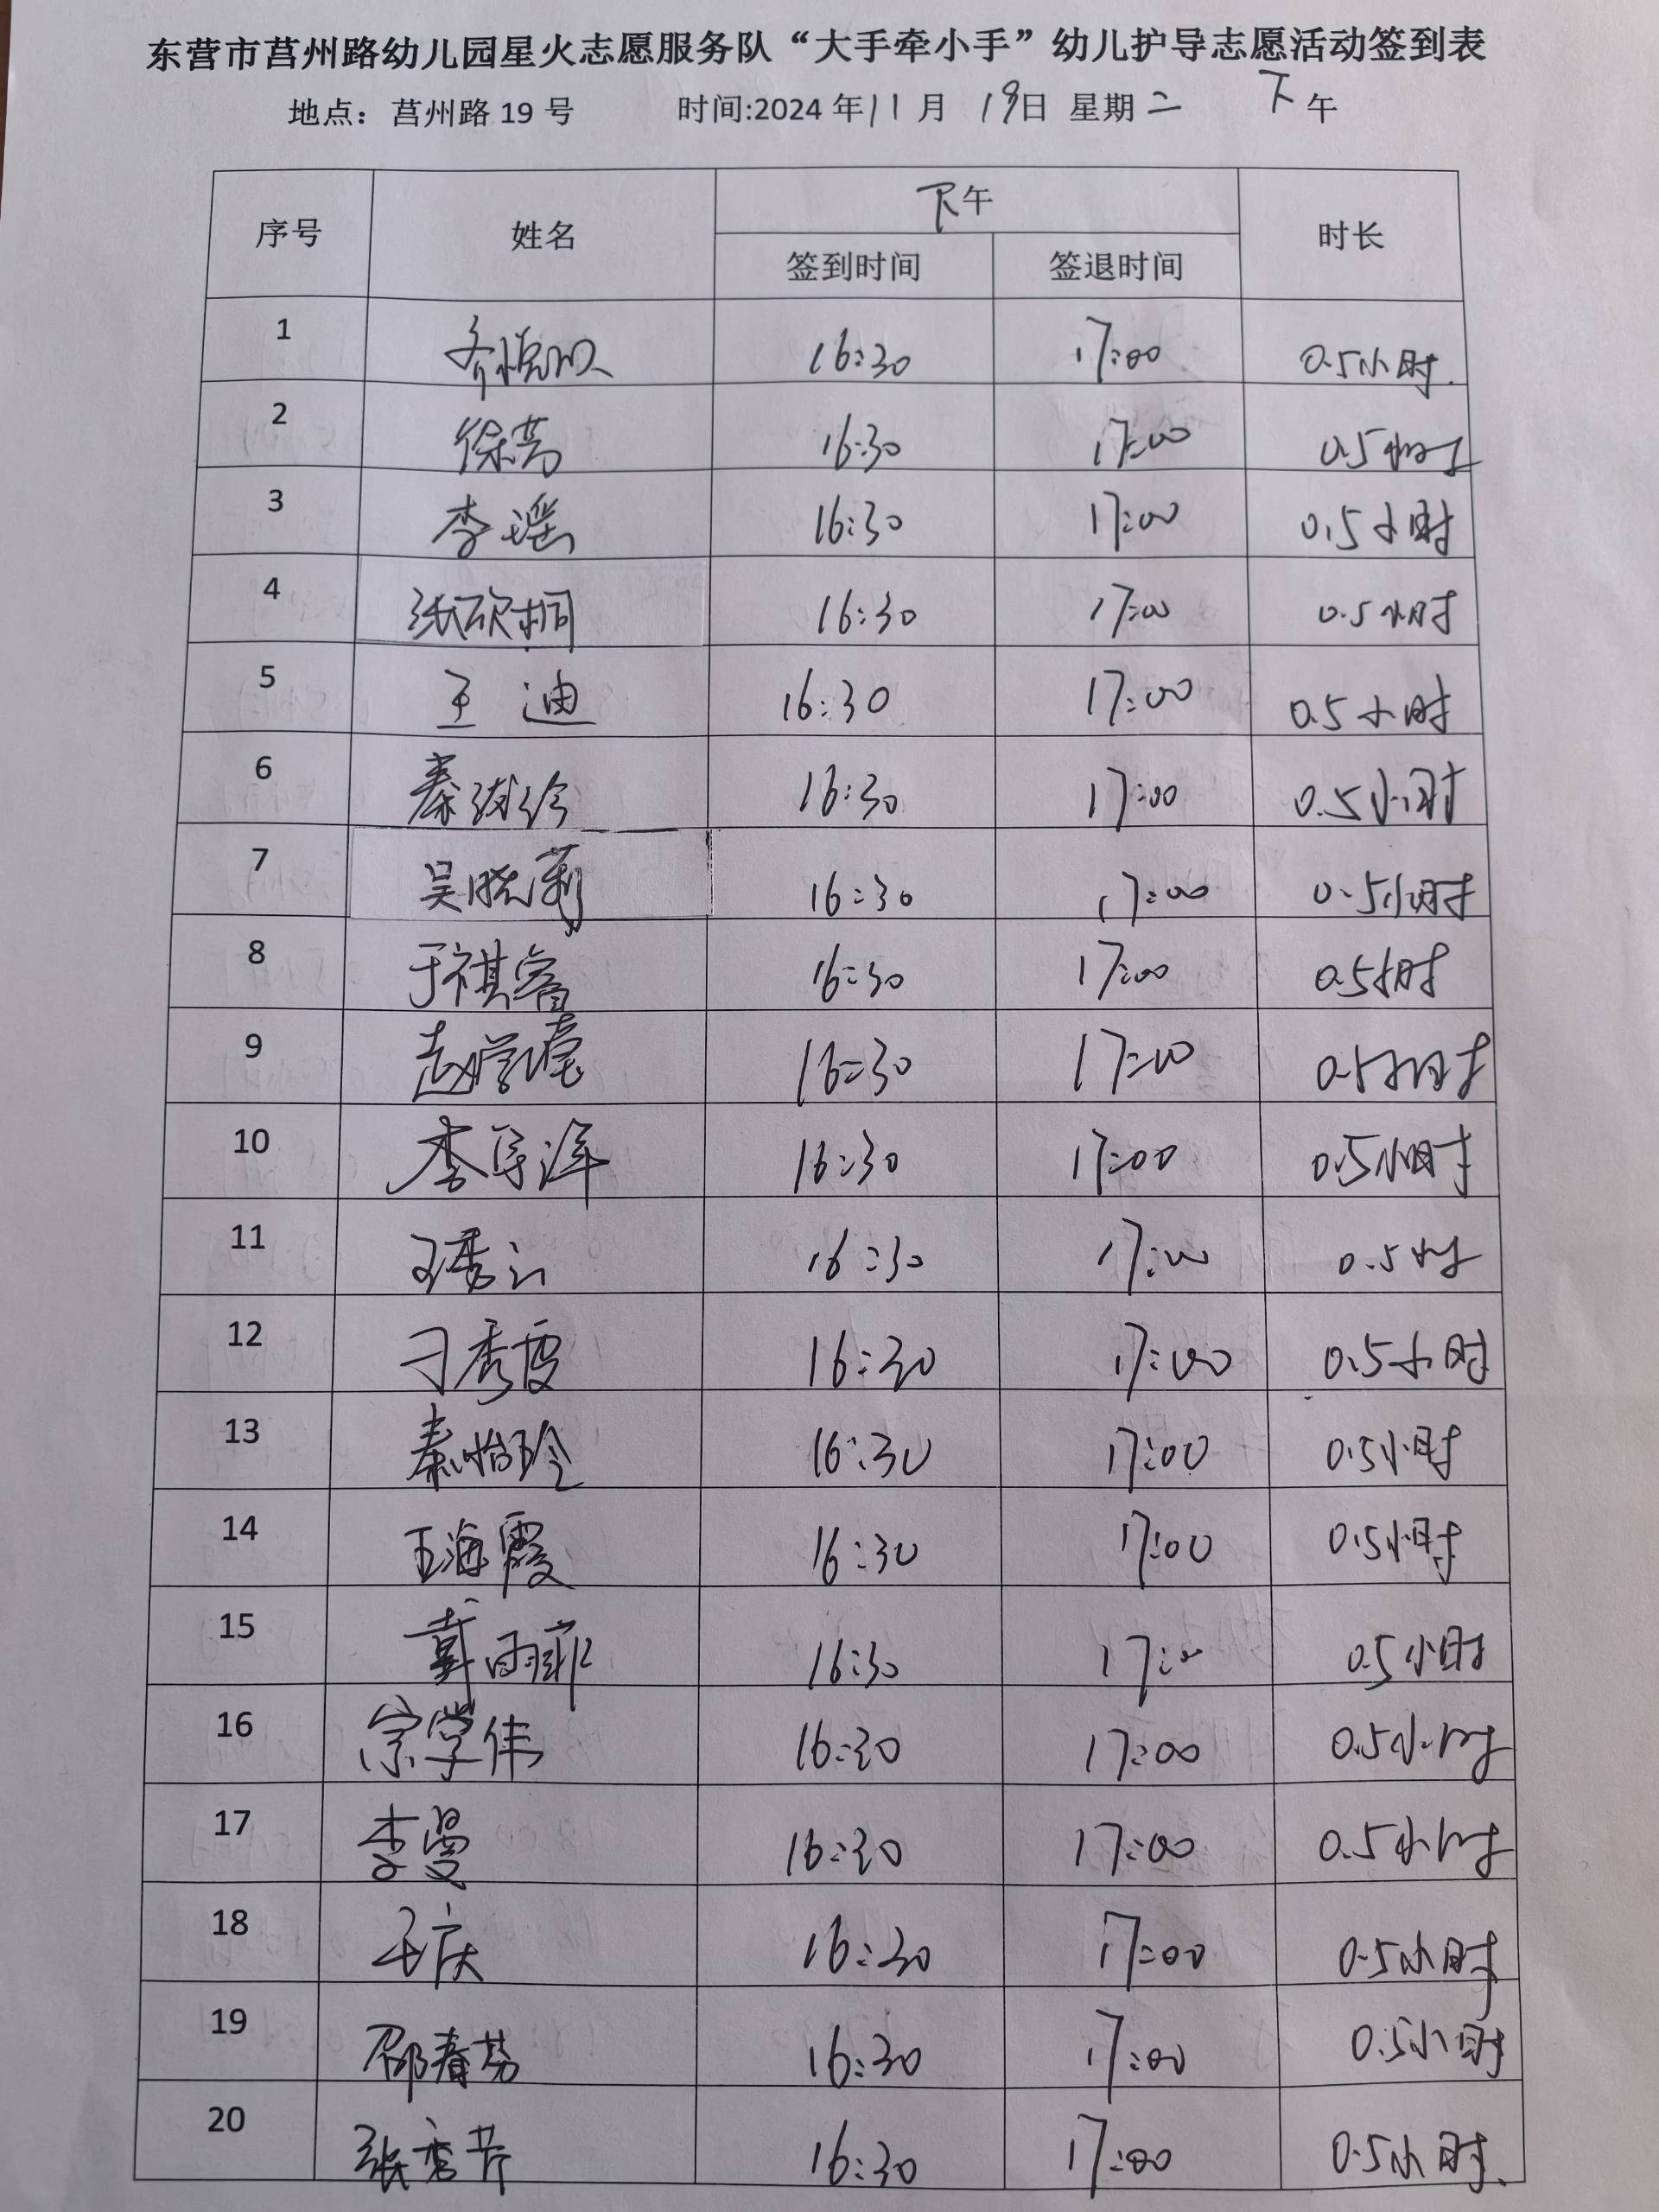 东营市莒州路幼儿园星火志愿服务队“大手牵小手”幼儿护导志愿活动签到表
地点：莒州路 19 号 时间:2024 年 11 月 19日 星期 二 下 午
序号 姓名 下午 时长
签到时间 签退时间
1 16:30 17:00 0.5小时.
2 徐芳 16:30 17:00 0.5小时
3 李瑶 16:30 17:00 0.5小时
4 张欣桐 16:30 17:00 0.5小时
5 王迪 16:30 17:00 0.5小时
6 秦 16:30 17:00 0.5小时
7 吴晓莉 16:30 17:00 0.5小时
8 于祺睿 16:30 17:00 0.5小时
9 赵 16:30 17:00 0.5小时
10 李 16:30 17:00 0.5小时
11 王秀云 16:30 17:00 0.5小时
12 刁秀雯 16:30 17:00 0.5小时
13 秦怡玲 16:30 17:00 0.5小时
14 王海霞 16:30 17:00 0.5小时
15 戴雨菲 16:30 17:00 0.5小时
16 宗学伟 16:30 17:00 0.5小时
17 李曼 16:30 17:00 0.5小时
18 王庆 16:30 17:00 0.5小时
19 邵春芬 16:30 17:00 0.5小时
20 张秀芹 16:30 17:00 0.5小时.